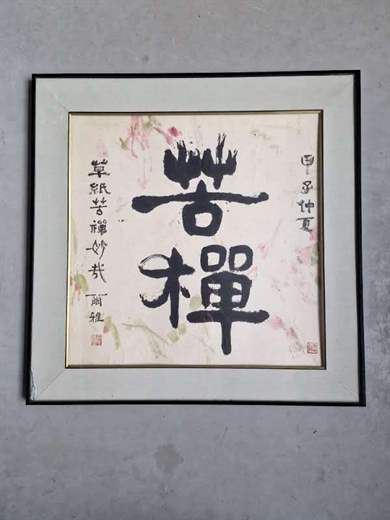 甲子仲夏
苦
禪
草紙苦禪妙哉
爾雅